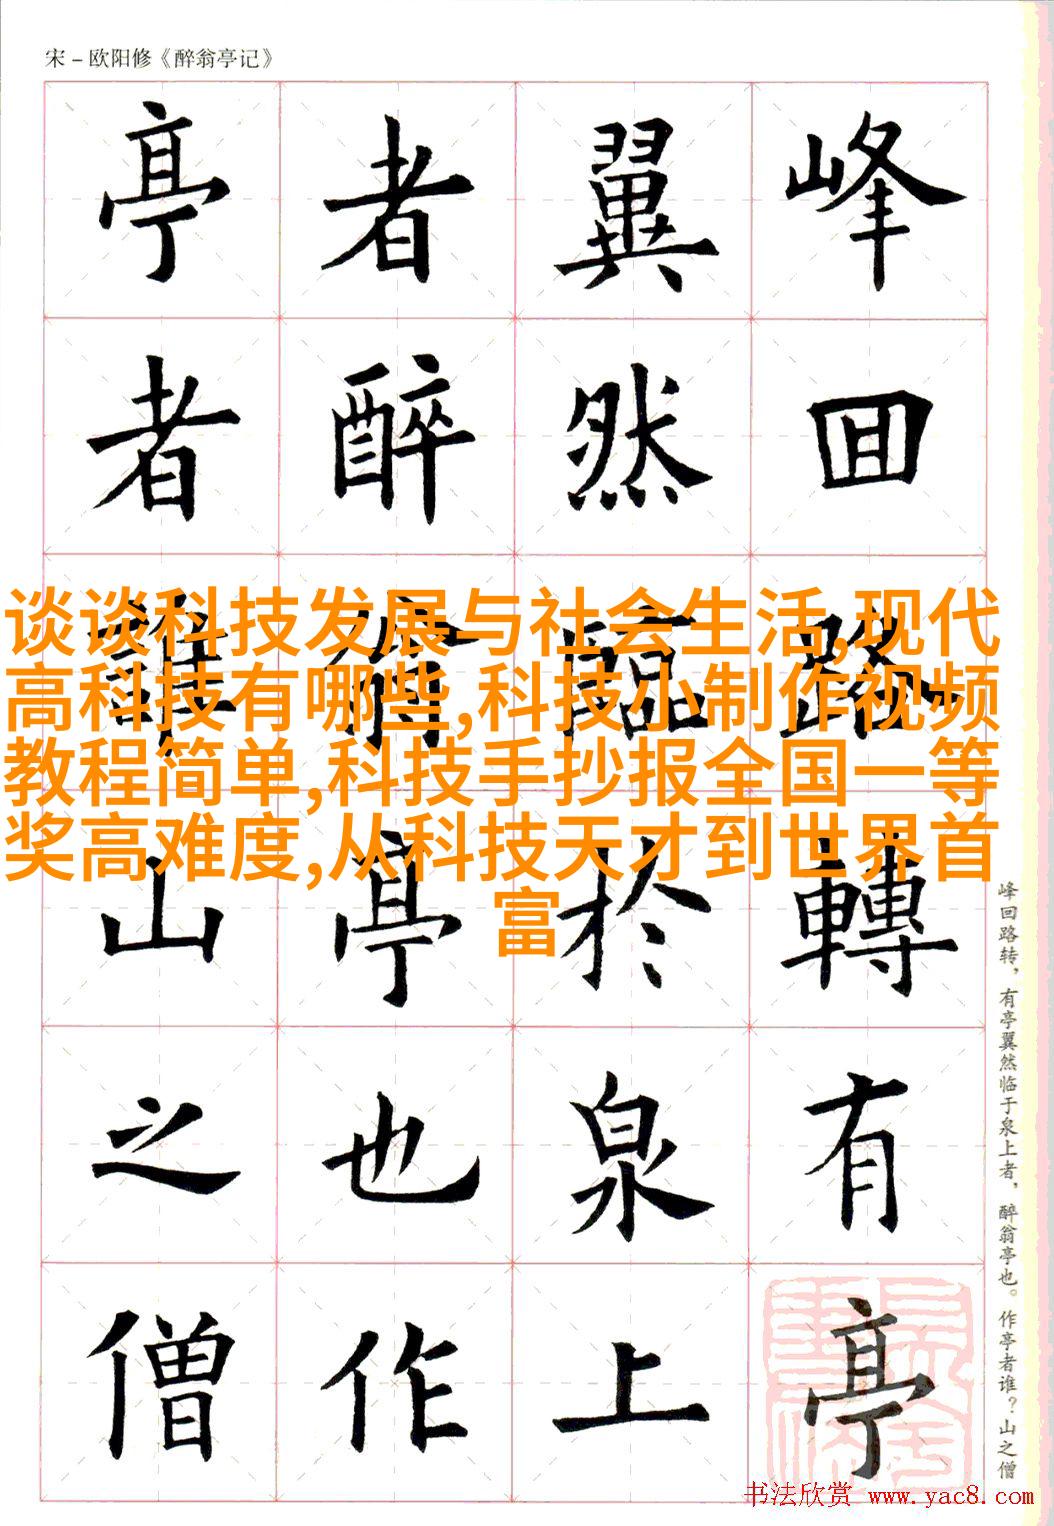 宋－欧阳修《醉翁亭记》
峰回路轉有亭
翼然臨於泉上
者醉翁亭也作
亭者誰山之僧
谈谈科技发展与社会生活,现代
高科技有哪些,科技小制作视频
教程简单,科技手抄报全国一等
奖高难度,从科技天才到世界首
富
峰回路转，有亭翼然临于泉上者，醉翁亭也。作亭者谁？山之僧
书法欣赏 www.yac8.com